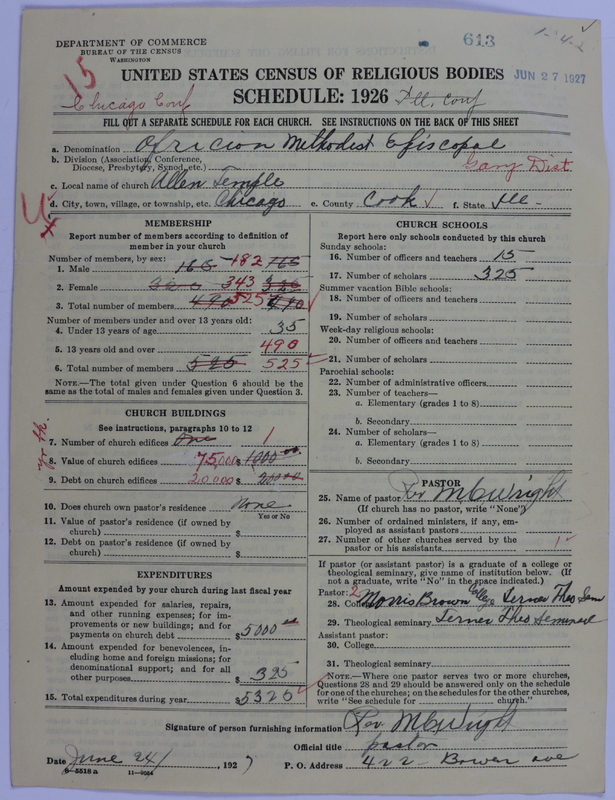 613
DEPARTMENT OF COMMERCE
BUREAU OF THE CENSUS
WASHINGTON
JUN 27 1927
15
UNITED STATES CENSUS OF RELIGIOUS BODIES
Chicago Conf
SCHEDULE: 1926 Ill. Conf
FILL OUT A SEPARATE SCHEDULE FOR EACH CHURCH. SEE INSTRUCTIONS ON THE BACK OF THIS SHEET
a. Denomination African Methodist Episcopal
b. Division (Association, Conference, Diocese, Presbytery, Synod, etc.) Gary Dist
c. Local name of church Allen Temple
d. City, town, village, or township, etc. Chicago e. County Cook f. State Ill-
MEMBERSHIP
Report number of members according to definition of member in your church
Number of members, by sex:
1. Male 165 182 165
2. Female 343 325
3. Total number of members 490 525 490
Number of members under and over 13 years old:
4. Under 13 years of age 35
5. 13 years old and over 490
6. Total number of members 525 525
NOTE.—The total given under Question 6 should be the same as the total of males and females given under Question 3.
CHURCH BUILDINGS
See instructions, paragraphs 10 to 12
7. Number of church edifices One 1
8. Value of church edifices 75,000 $1000
9. Debt on church edifices 20,000 $
10. Does church own pastor's residence None
Yes or No
11. Value of pastor's residence (if owned by church) $
12. Debt on pastor's residence (if owned by church) $
EXPENDITURES
Amount expended by your church during last fiscal year
13. Amount expended for salaries, repairs, and other running expenses; for improvements or new buildings; and for payments on church debt $5000
14. Amount expended for benevolences, including home and foreign missions; for denominational support; and for all other purposes $325
15. Total expenditures during year $5325
CHURCH SCHOOLS
Report here only schools conducted by this church
Sunday schools:
16. Number of officers and teachers 15
17. Number of scholars 325
Summer vacation Bible schools:
18. Number of officers and teachers
19. Number of scholars
Week-day religious schools:
20. Number of officers and teachers
21. Number of scholars
Parochial schools:
22. Number of administrative officers
23. Number of teachers—
a. Elementary (grades 1 to 8)
b. Secondary
24. Number of scholars—
a. Elementary (grades 1 to 8)
b. Secondary
PASTOR
25. Name of pastor Rev M C Wright
(If church has no pastor, write "None")
26. Number of ordained ministers, if any, employed as assistant pastors
27. Number of other churches served by the pastor or his assistants 1
If pastor (or assistant pastor) is a graduate of a college or theological seminary, give name of institution below. (If not a graduate, write "No" in the space indicated.)
Pastor: 2
28. College Morris Brown College Theo Sem
29. Theological seminary Theo
Assistant pastor:
30. College
31. Theological seminary
NOTE.—Where one pastor serves two or more churches, Questions 28 and 29 should be answered only on the schedule for one of the churches; on the schedules for the other churches, write "See schedule for church."
Signature of person furnishing information Rev M C Wright
Official title pastor
Date June 24, 1927 P. O. Address 422 Bower ave
6-5518 a 11-9084